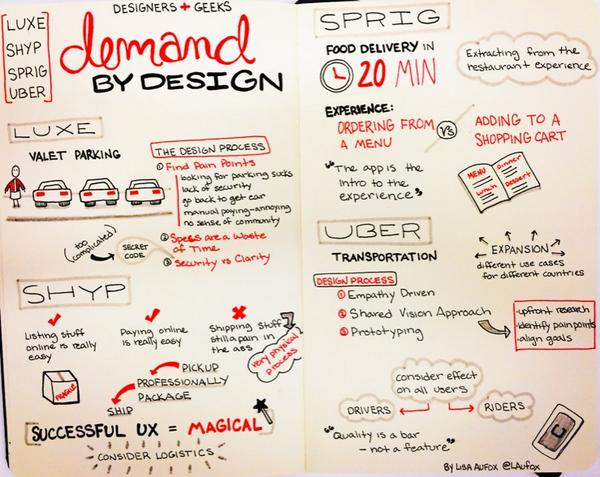 LUXE
SHYP
SPRIG
UBER
DESIGNERS + GEEKS
demand
BY DESIGN
LUXE
VALET PARKING
THE DESIGN PROCESS
① Find Pain Points
looking for parking sucks
lack of security
go back to get car
manual paying-annoying
no sense of community
② Specs are a Waste
of Time
③ Security vs Clarity
too
complicated
SECRET
CODE
SHYP
Listing stuff
online is really
easy
Paying online
is really easy
Shipping stuff
still a pain in
the ass
very physical
process
FRAGILE
PICKUP
PROFESSIONALLY
PACKAGE
SHIP
SUCCESSFUL UX = MAGICAL
CONSIDER LOGISTICS
SPRIG
FOOD DELIVERY IN
20 MIN
Extracting from the
restaurant experience
EXPERIENCE:
ORDERING FROM
A MENU
VS
ADDING TO A
SHOPPING CART
"The app is the
intro to the
experience"
MENU
Lunch
Dinner
Dessert
UBER
TRANSPORTATION
EXPANSION
different use cases
for different countries
DESIGN PROCESS
① Empathy Driven
② Shared Vision Approach
③ Prototyping
-upfront research
-identify pain points
-align goals
consider effect
on all users
DRIVERS
RIDERS
"Quality is a bar
- not a feature"
BY LISA AUFOX @LAUFOX